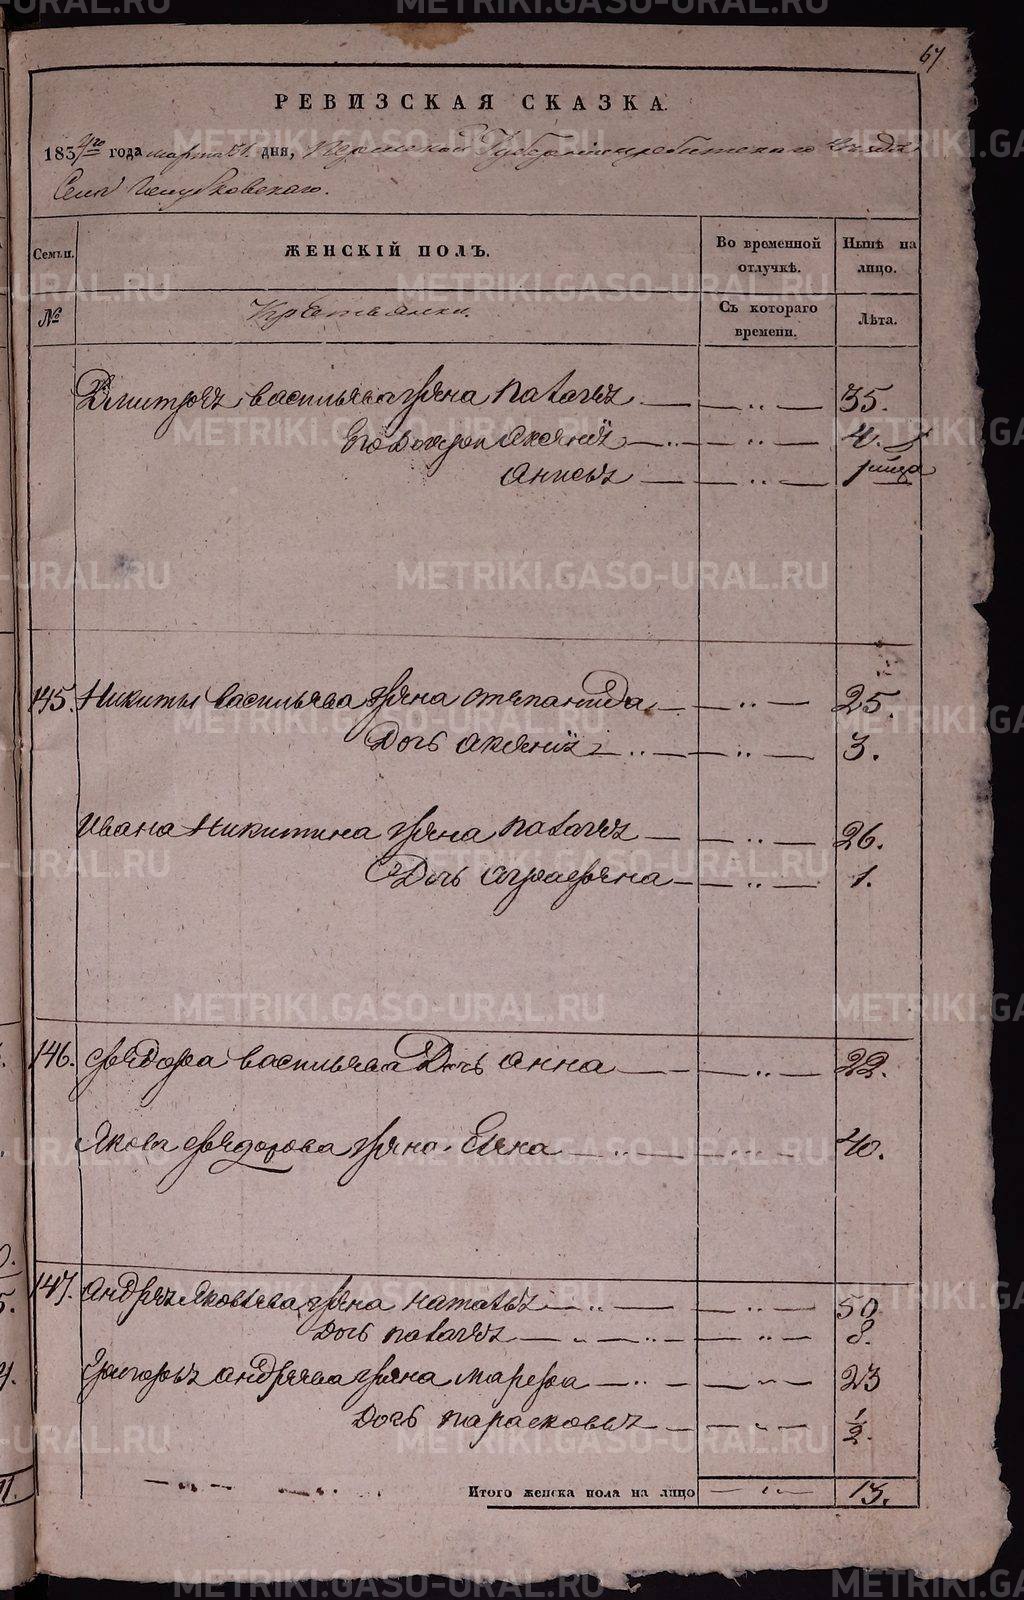 67
РЕВИЗСКАЯ СКАЗКА.
1834го года марта 31 дня, Пермской Губернии Ирбитского Уезда
Села Голубковскаго.
Семьи. ЖЕНСКІЙ ПОЛЪ. Во временной отлучкѣ. Нынѣ на лицо.
№ Крестьянки. Съ котораго времени. Лѣта.
Дмитрея васильева жена Паталья — „ — 35.
Его Дочери Аксения — „ — 4.
Анисья — „ — 1
145. Никиты васильева жена степанида — „ — 25.
Дочь аксения — „ — 3.
Ивана Никитина жена Паталья — „ — 26.
Дочь аграфена — „ — 1.
146. Федора васильева Дочь анна — „ — 22.
Якова федорова жена Елена — „ — 40.
147. Андрея Яковлева жена наталья — „ — 50
Дочь паталья — „ — 8.
Григорья андреева жена марфа — „ — 23
Дочь парасковья — „ — 1/2.
Итого женска пола на лицо — „ — 13.
METRIKI.GASO-URAL.RU